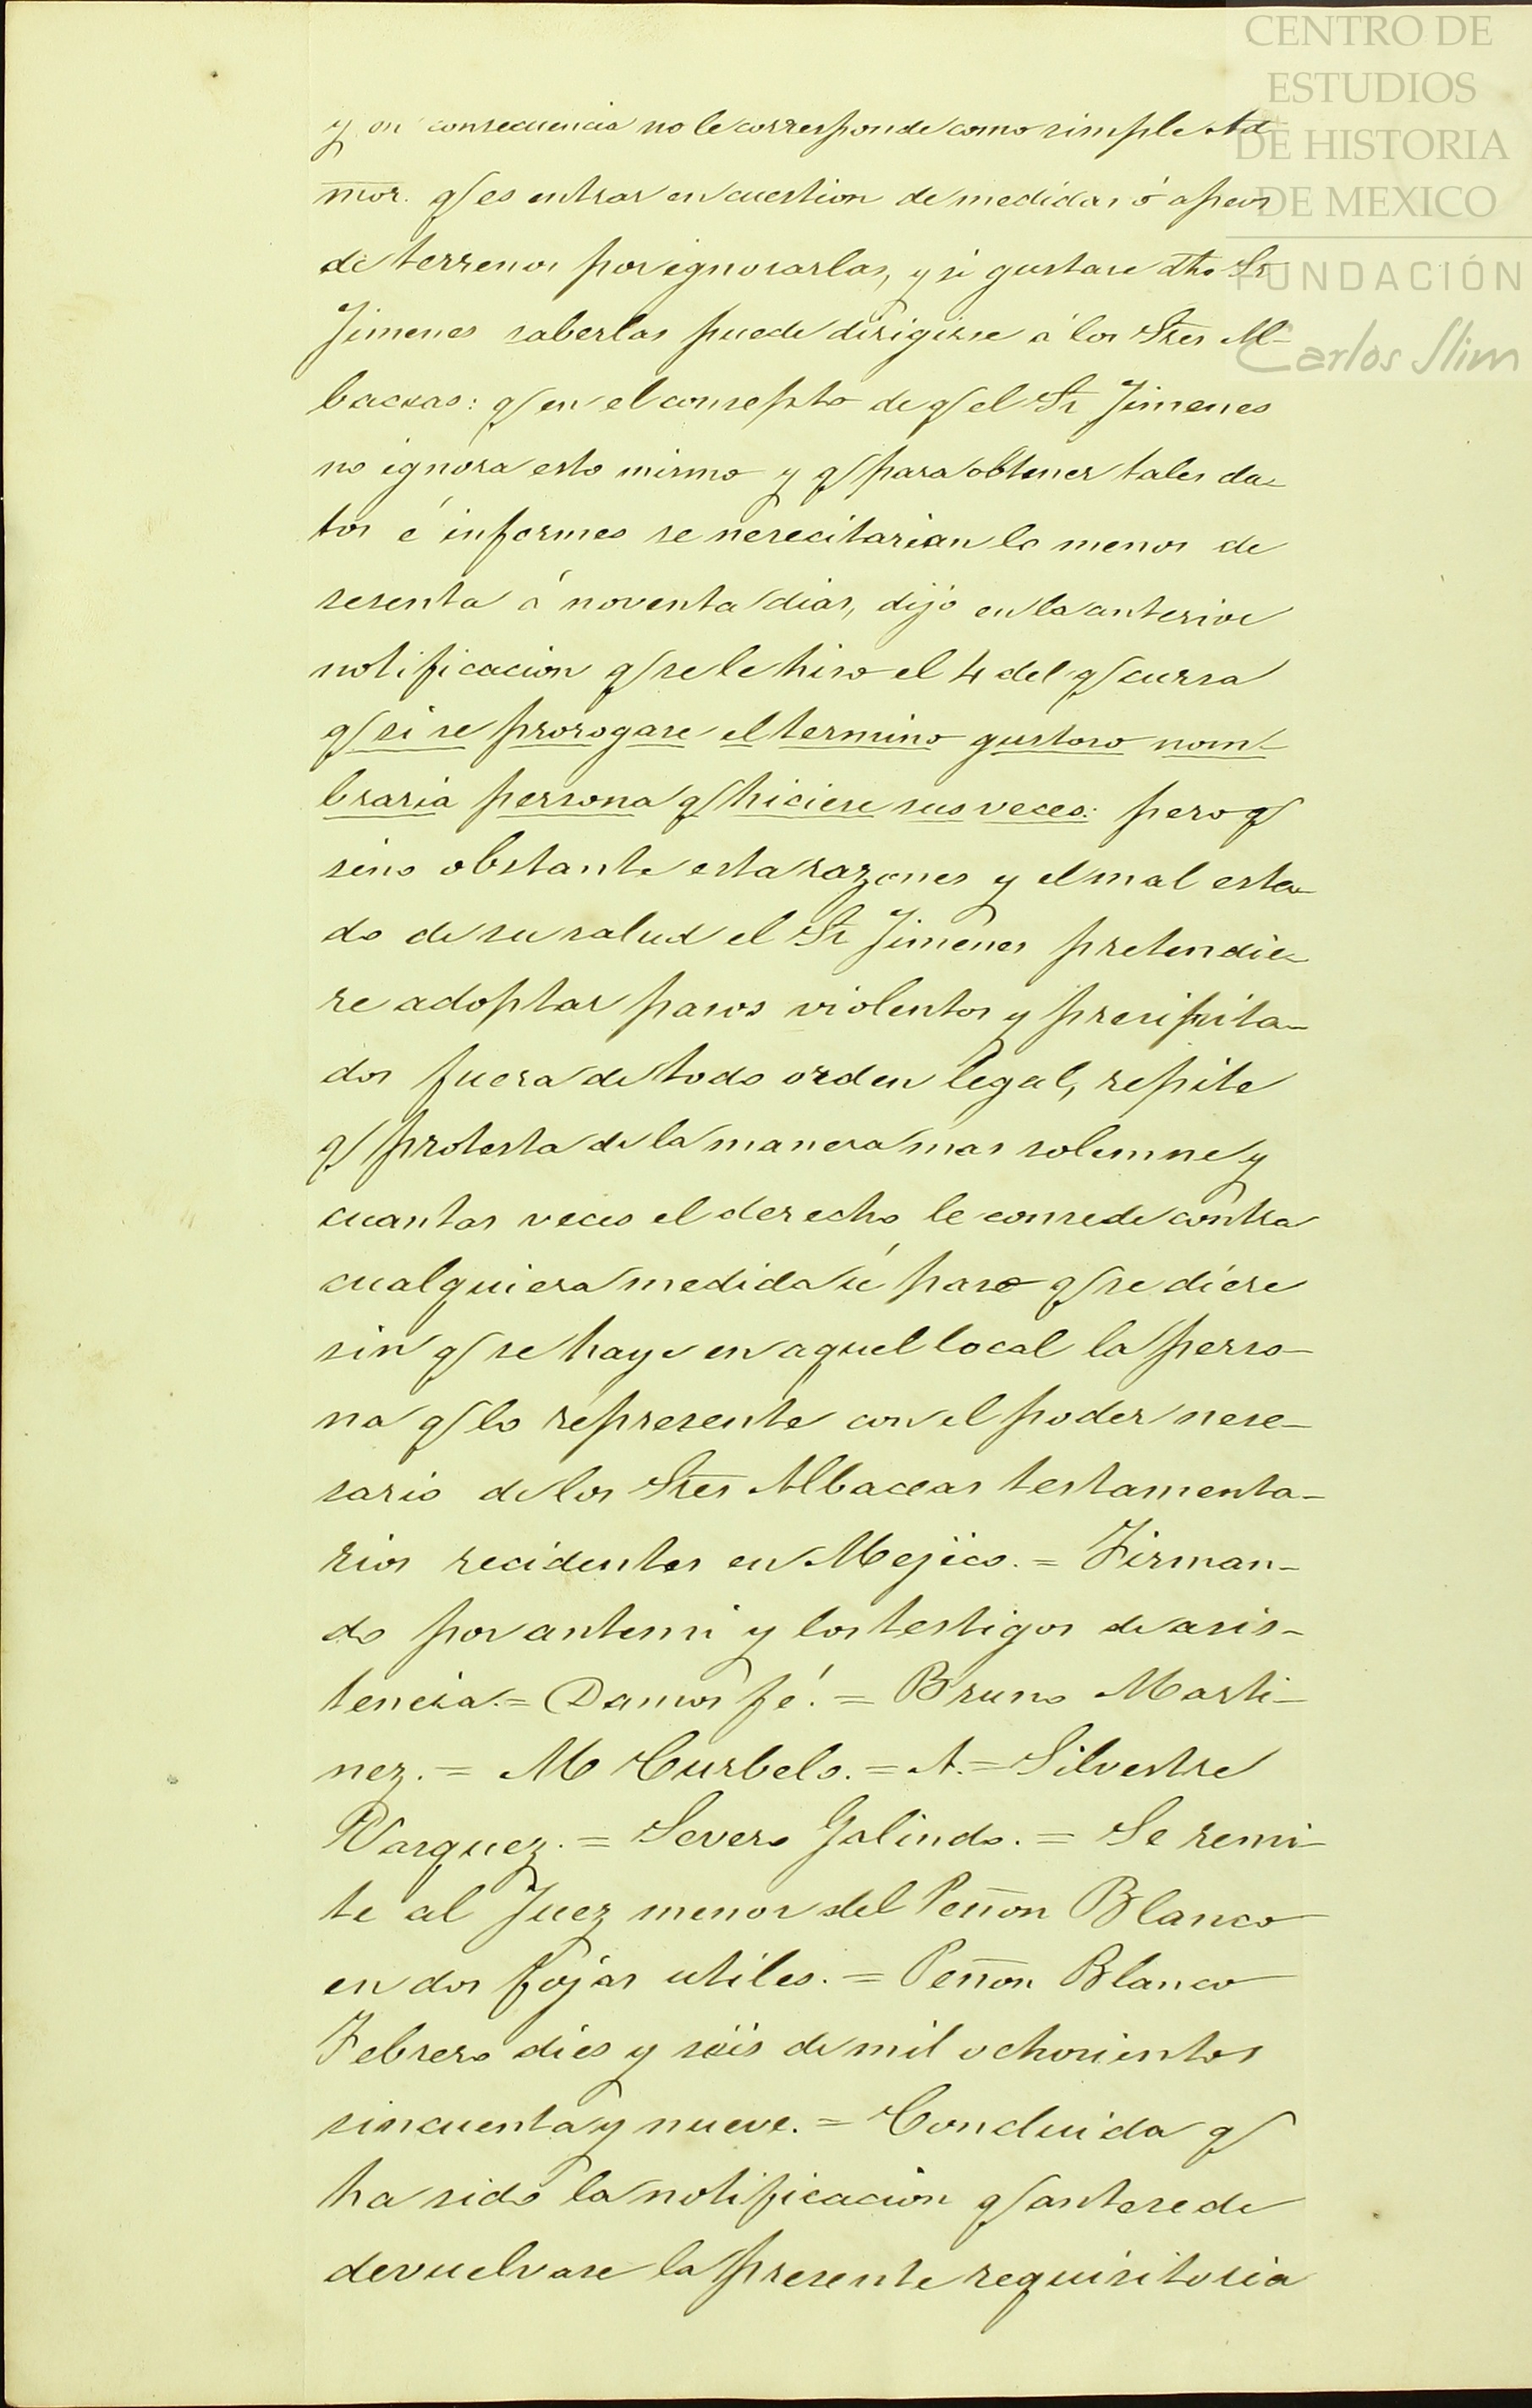 CENTRO DE
ESTUDIOS
DE HISTORIA
DE MEXICO
FUNDACIÓN
Carlos Slim
y en consecuencia no le corresponde como simple Ad
mor. q/ es entrar en cuestion de medidas ó apeos
de terrenos por ignorarlas, y si gustare dho Sr
Jimenes saberlas puede dirigirse á los Sres Al-
baceas: q/ en el consepto de q/ el Sr Jimenes
no ignora esto mismo y q/ para obtener tales da-
tos é informes se nesecitarian lo menos de
sesenta á noventa dias, dijo en la anterior
notificacion q/ se le hiso el 4 del q/ cursa
q/ si se prorogase el termino gustoso nom-
braria persona q/ hiciese sus veces: pero q/
sino obstante esta razones y el mal esta-
do de su salud el Sr Jimenes pretendie-
se adoptar pasos violentos y presipita-
dos fuera de todo orden legal, repite
q/ protesta de la manera mas solemne y
cuantas veces el derecho le consede contra
cualquiera medida ú paso q/ se diere
sin q/ se haye en aquel local la perso-
na q/ lo represente con el poder nese-
sario de los Sres Albaceas testamenta-
rios recidentes en Mejico. = Firman-
do por antemi y los testigos de asis-
tencia. = Damos fé. = Bruno Marti-
nez. = M Curbelo. = A. = Silvestre
Vasquez. = Severo Galindo. = Se remi-
te al Juez menor del Peñon Blanco
en dos fojas utiles. = Peñon Blanco
Febrero dies y séis de mil ochosientos
sincuenta y nueve. = Concluida q/
ha sido la notificacion q/ antesede
devuelvase la presente requisitoria